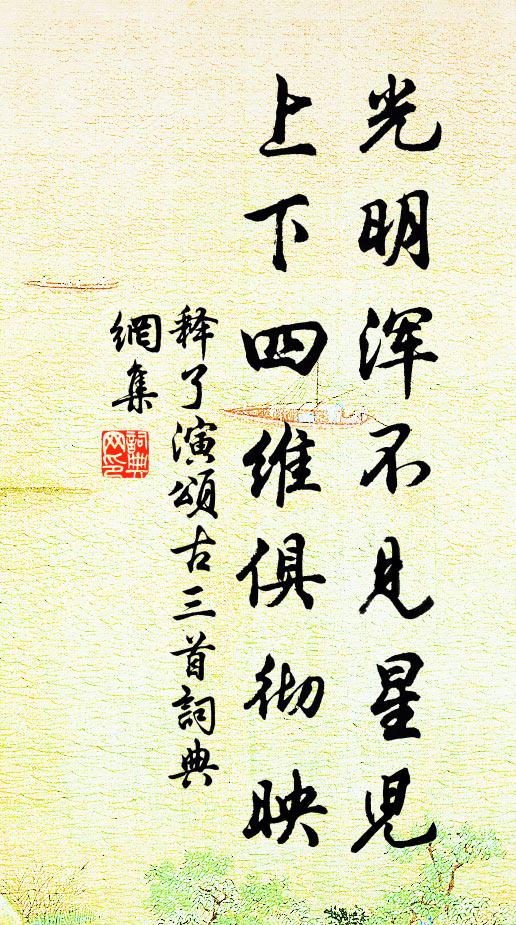 光明浑不见星児
上下四维俱彻映
释了演頌古三首詞典
網集
詞典
网印